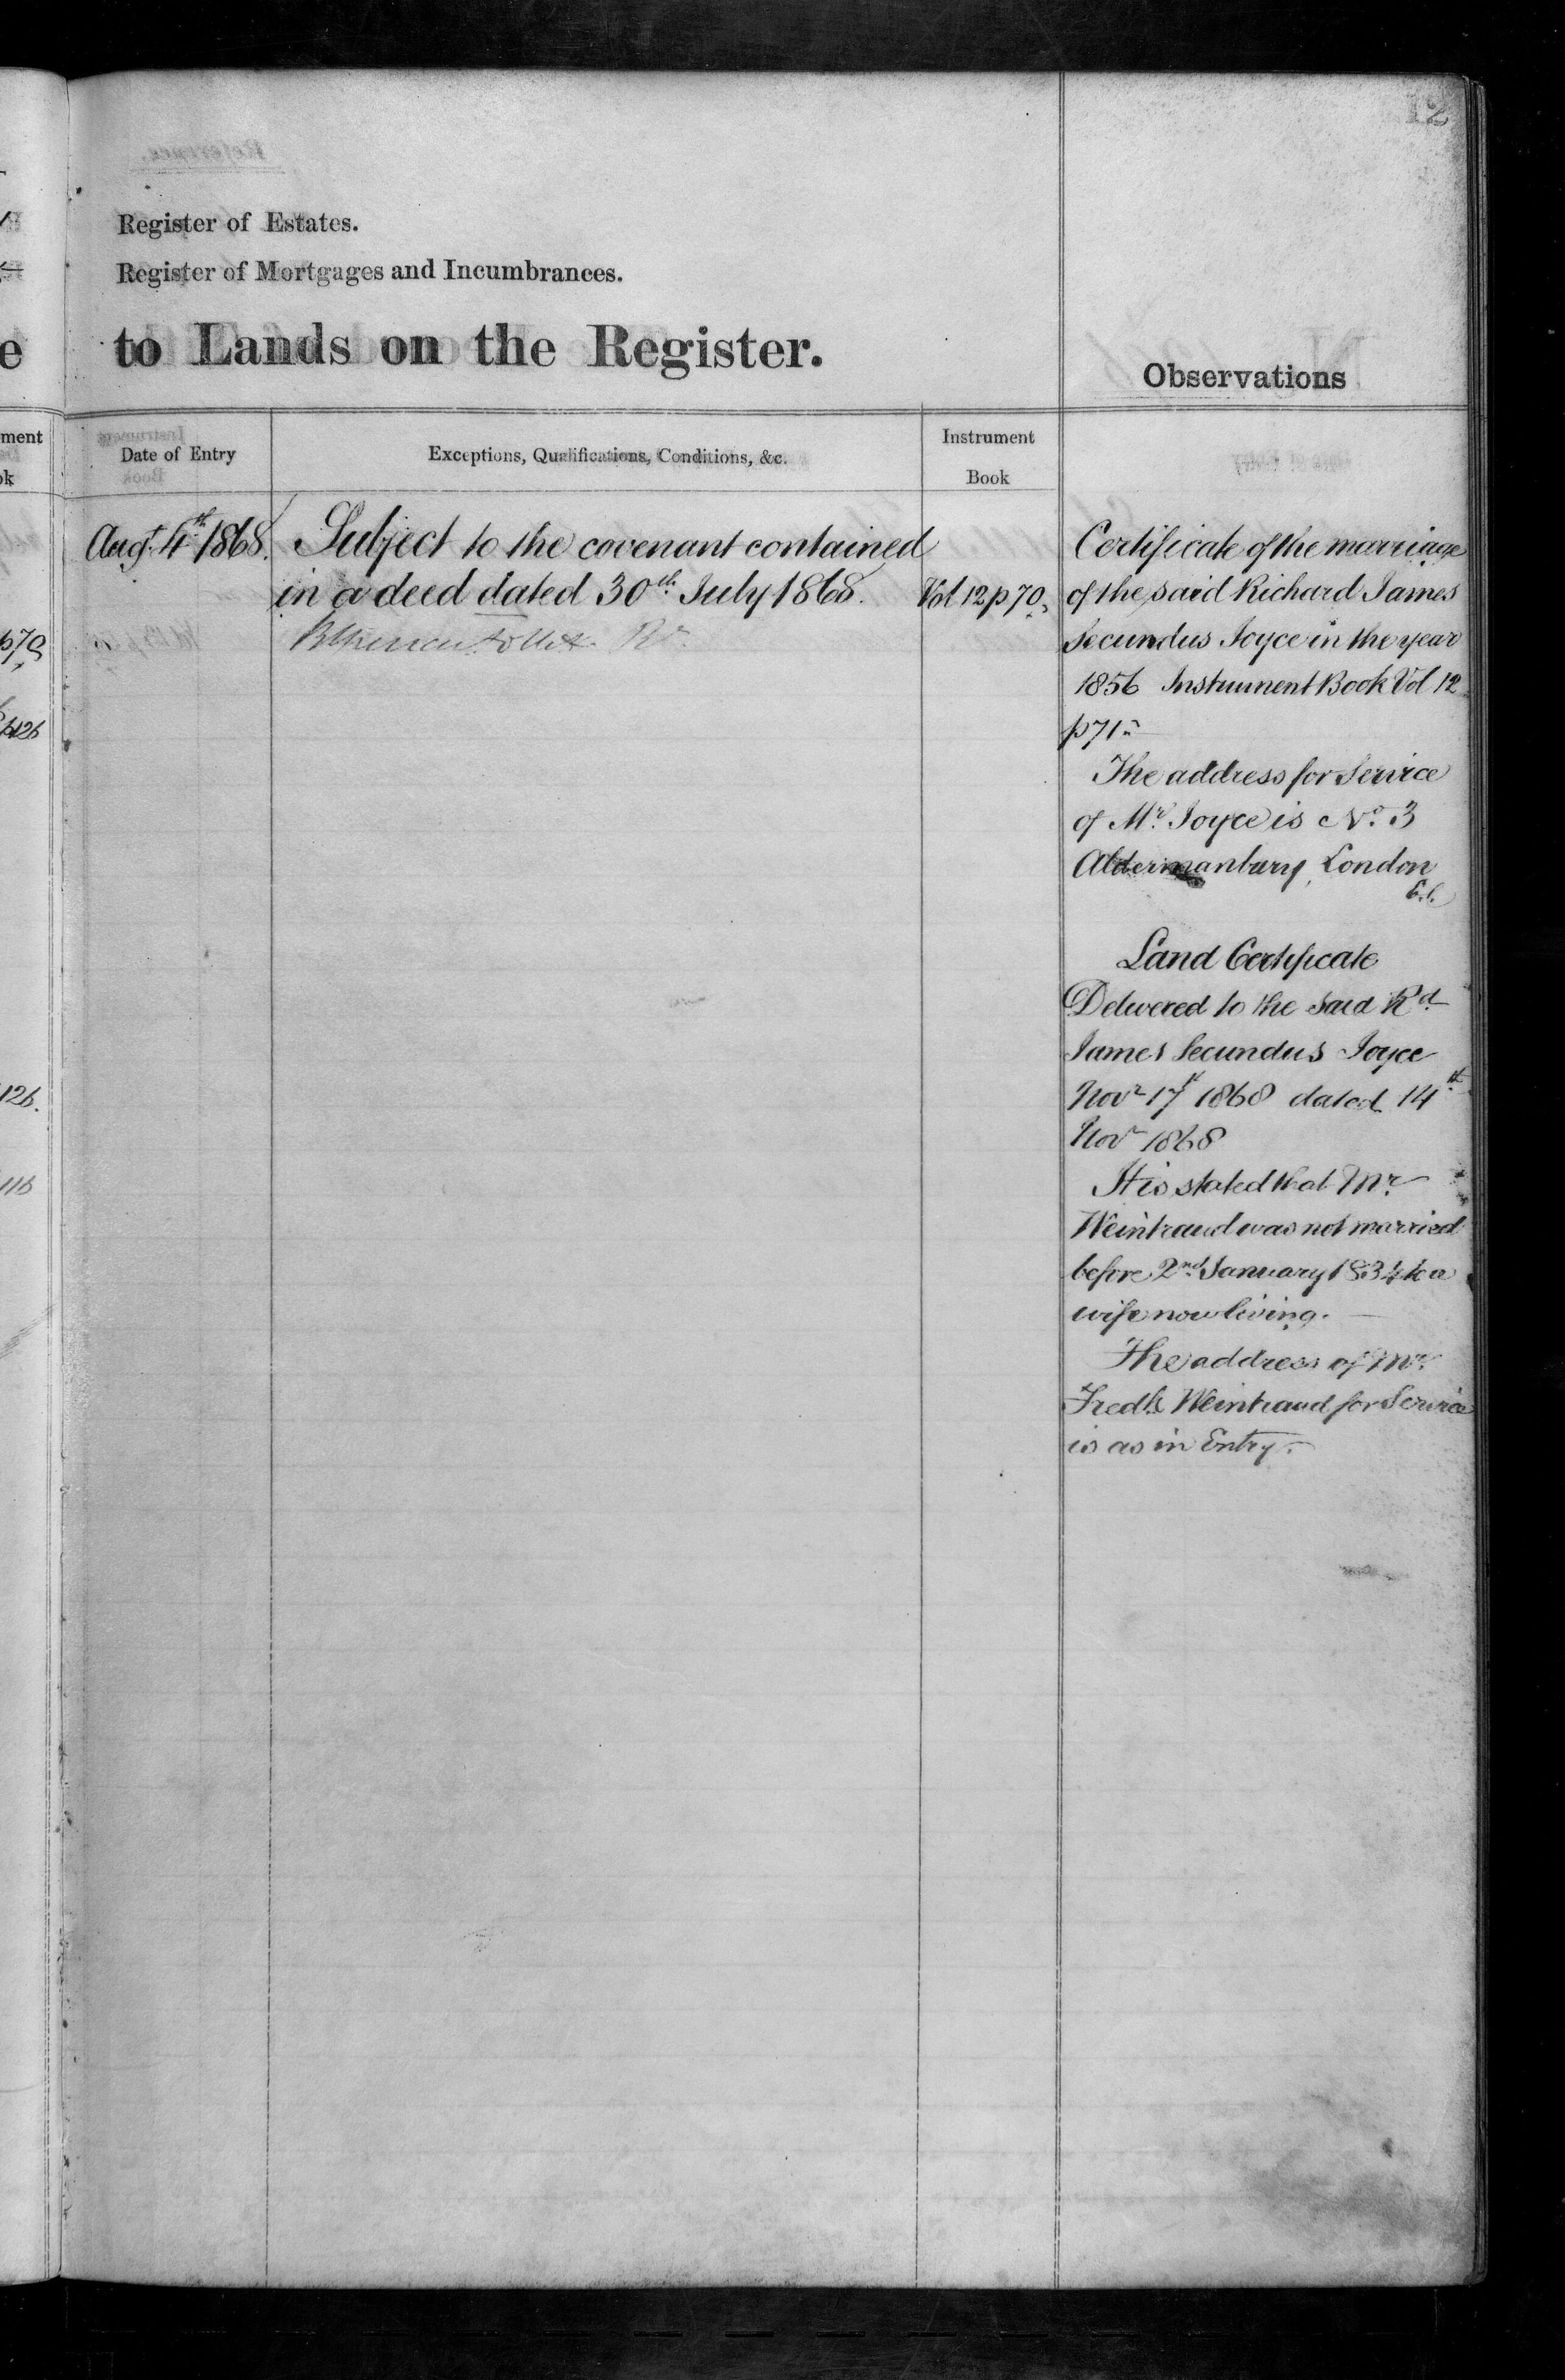 12
Register of Estates.
Register of Mortgages and Incumbrances.
e to Lands on the Register.
Observations
ment
ok
Date of Entry
Exceptions, Qualifications, Conditions, &c.
Instrument
Book
Augt. 4th 1868. Subject to the covenant contained
in a deed dated 30th July 1868. Vol 12 p 70
Follett Rr.
p70
p126
126.
116
Certificate of the marriage
of the said Richard James
Secundus Joyce in the year
1856 Instrument Book Vol 12
p71
The address for Service
of Mr. Joyce is No. 3
Aldermanbury, London
E.C.
Land Certificate
Delivered to the said Rd.
James Secundus Joyce
Novr 17th 1868 dated 14th
Novr 1868
It is stated that Mr.
Weintraud was not married
before 2nd January 1834 to a
wife now living.
The address of Mr.
Fredk. Weintraud for Service
is as in Entry.